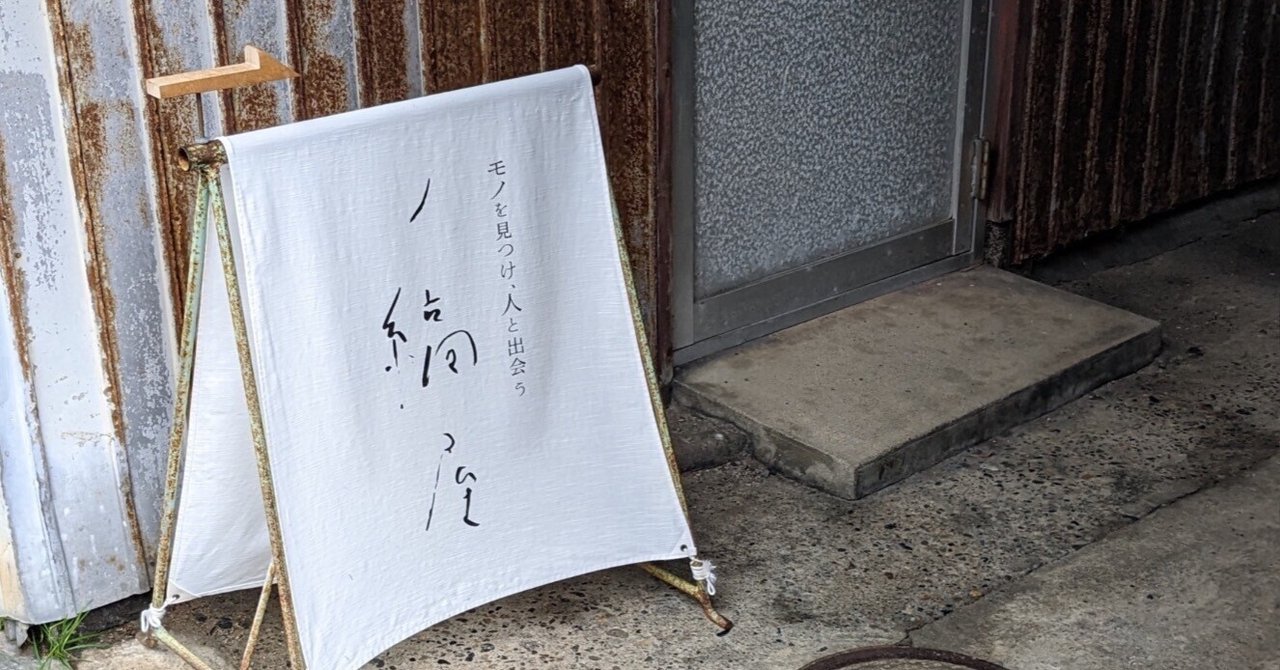 モノを見つけ、人と出会う
ノ縞屋